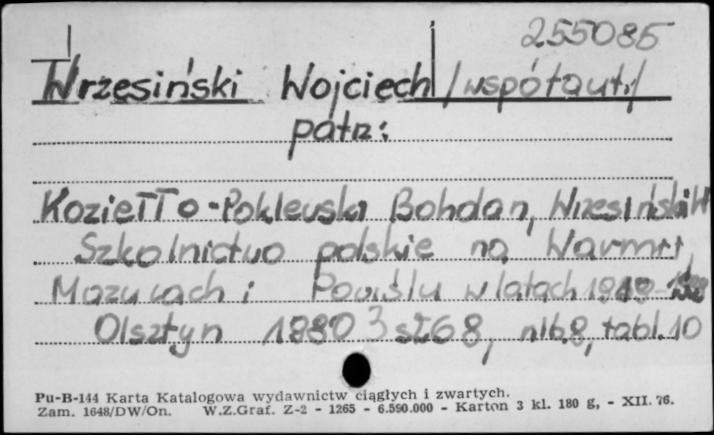 255085
Wrzesiński Wojciech /współaut./
patrz:
Koziełło-Poklewski Bohdan, Wrzesiński W
Szkolnictwo polskie na Warmii,
Mazurach i Powiślu w latach 1919-
Olsztyn 1980 s. 268, nlb.8, tabl.10
Pu-B-144 Karta Katalogowa wydawnictw ciągłych i zwartych.
Zam. 1648/DW/On. W.Z.Graf. Z-2 - 1265 - 6.590.000 - Karton 3 kl. 180 g, - XII. 76.